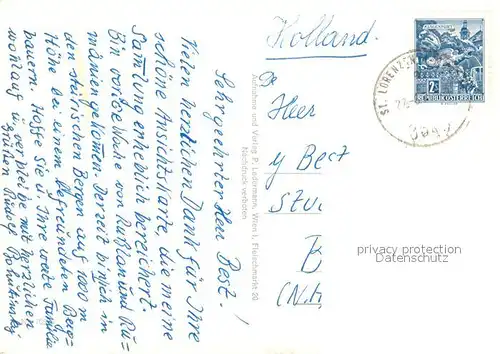 Sehr geehrter Herr Best!
Vielen herzlichen Dank für Ihre
schöne Ansichtskarte, die meine
Samlung erheblich bereichert.
Bin vorige Woche von Rußland und Ru=
mänien gekommen. Derzeit bin ich in
den steirischen Bergen auf 1000 m
Höhe bei einem befreundeten Berg=
bauern. Hoffe Sie u. Ihre werte Familie
wohlauf u. verbleibe mit herzlichen
Grüßen Rudolf
Aufnahme und Verlag P. Ledermann, Wien I, Fleischmarkt 20
Nachdruck verboten
Holland.
Heer
y Best
B
(N.
REPUBLIK ÖSTERREICH
ST. LORENZEN
privacy protection
Datenschutz